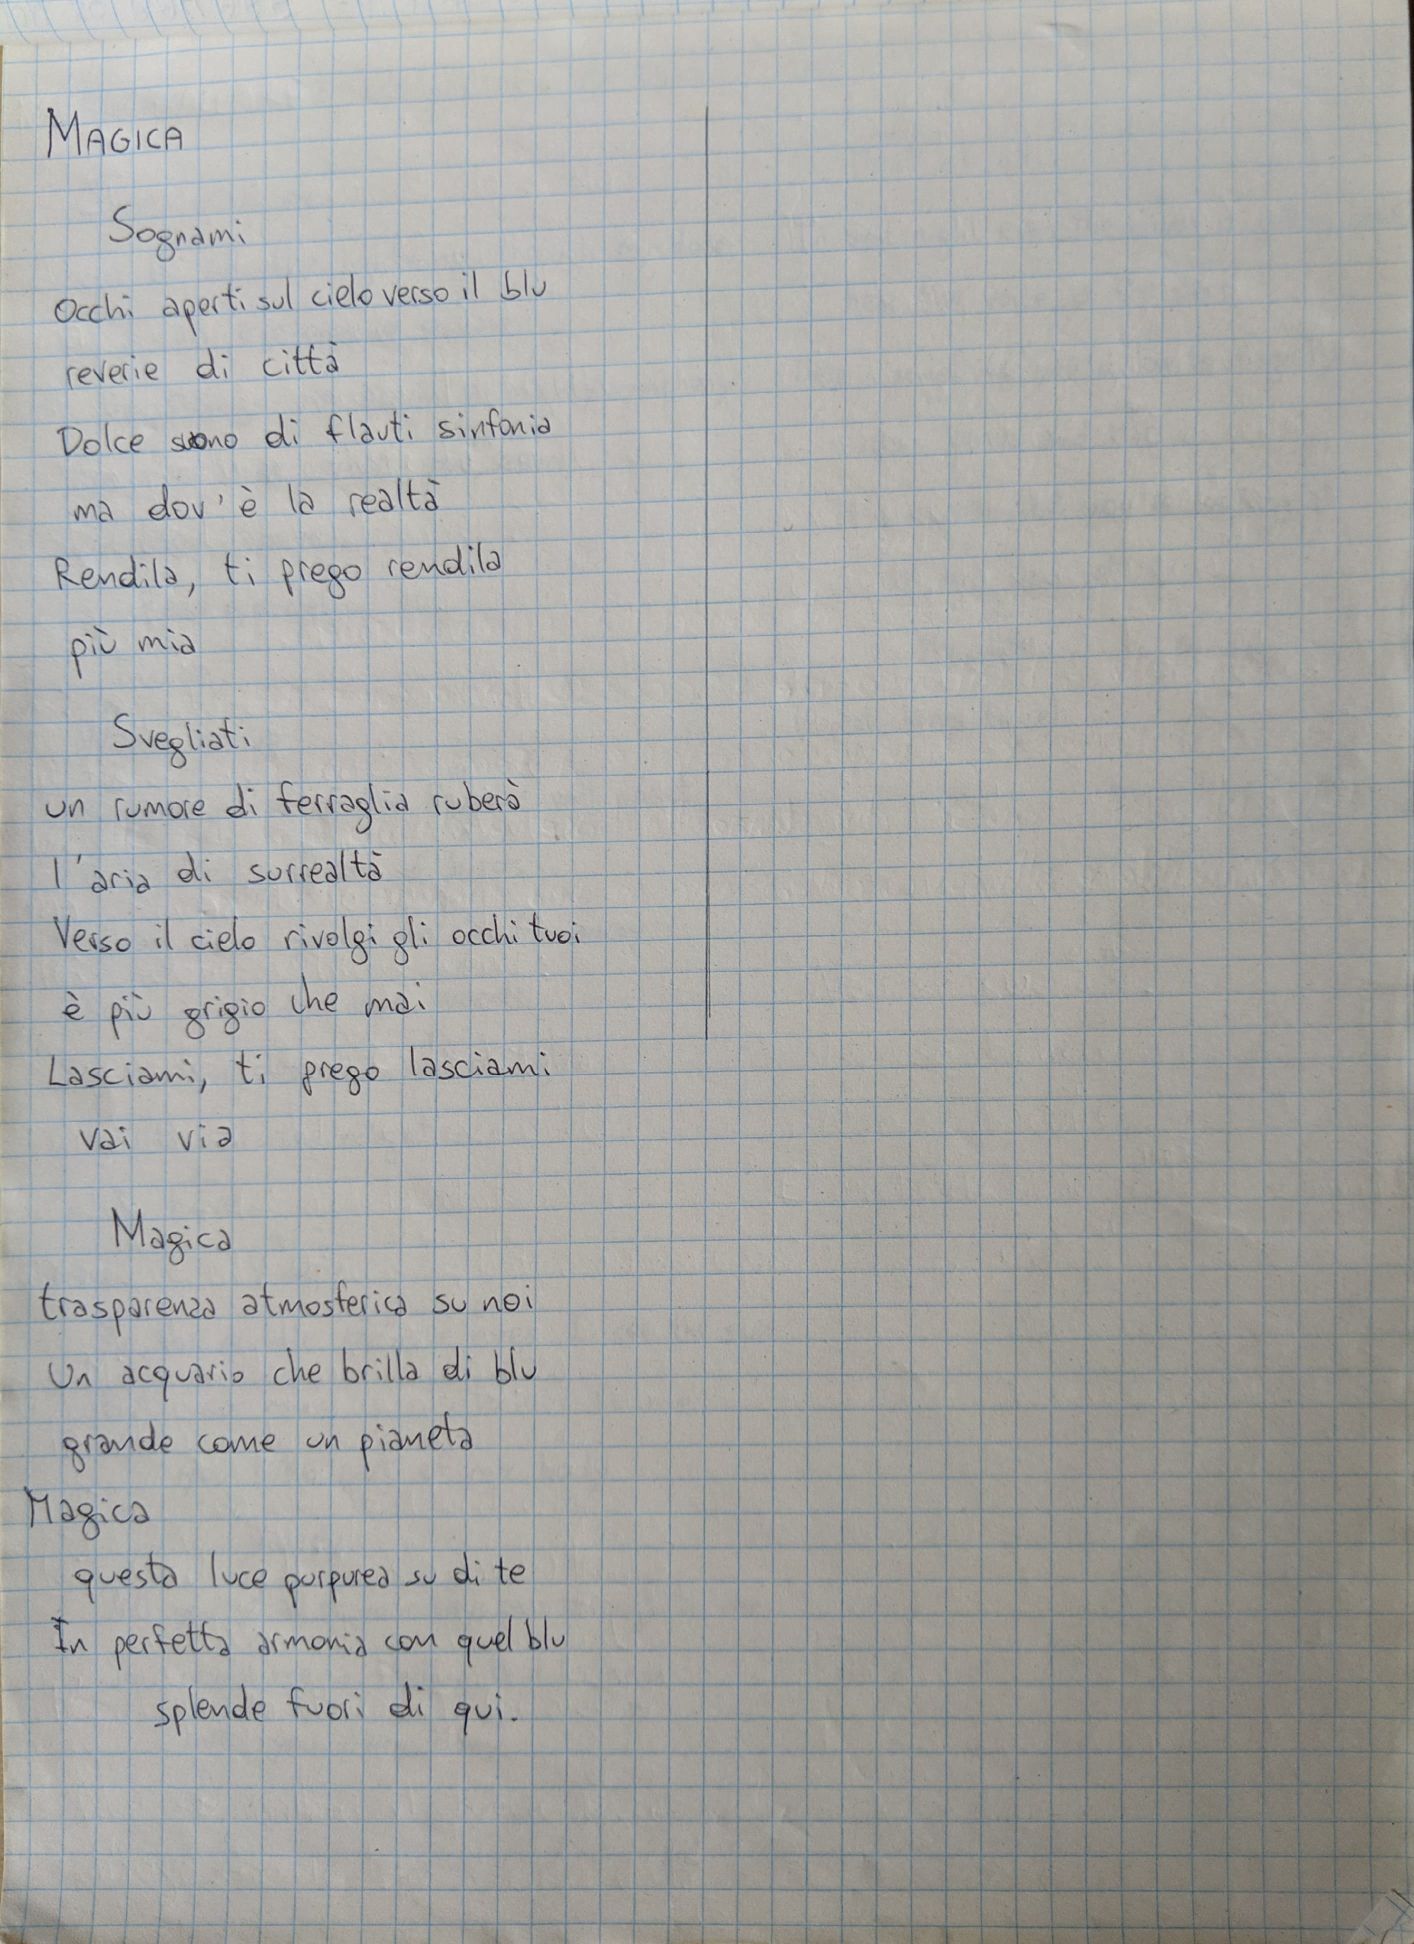 MAGICA
Sognami
Occhi aperti sul cielo verso il blu
reverie di città
Dolce suono di flauti sinfonia
ma dov'è la realtà
Rendila, ti prego rendila
più mia
Svegliati
un rumore di ferraglia ruberà
l'aria di surrealtà
Verso il cielo rivolgi gli occhi tuoi
è più grigio che mai
Lasciami, ti prego lasciami
vai via
Magica
trasparenza atmosferica su noi
Un acquario che brilla di blu
grande come un pianeta
Magica
questa luce purpurea su di te
In perfetta armonia con quel blu
splende fuori di qui.